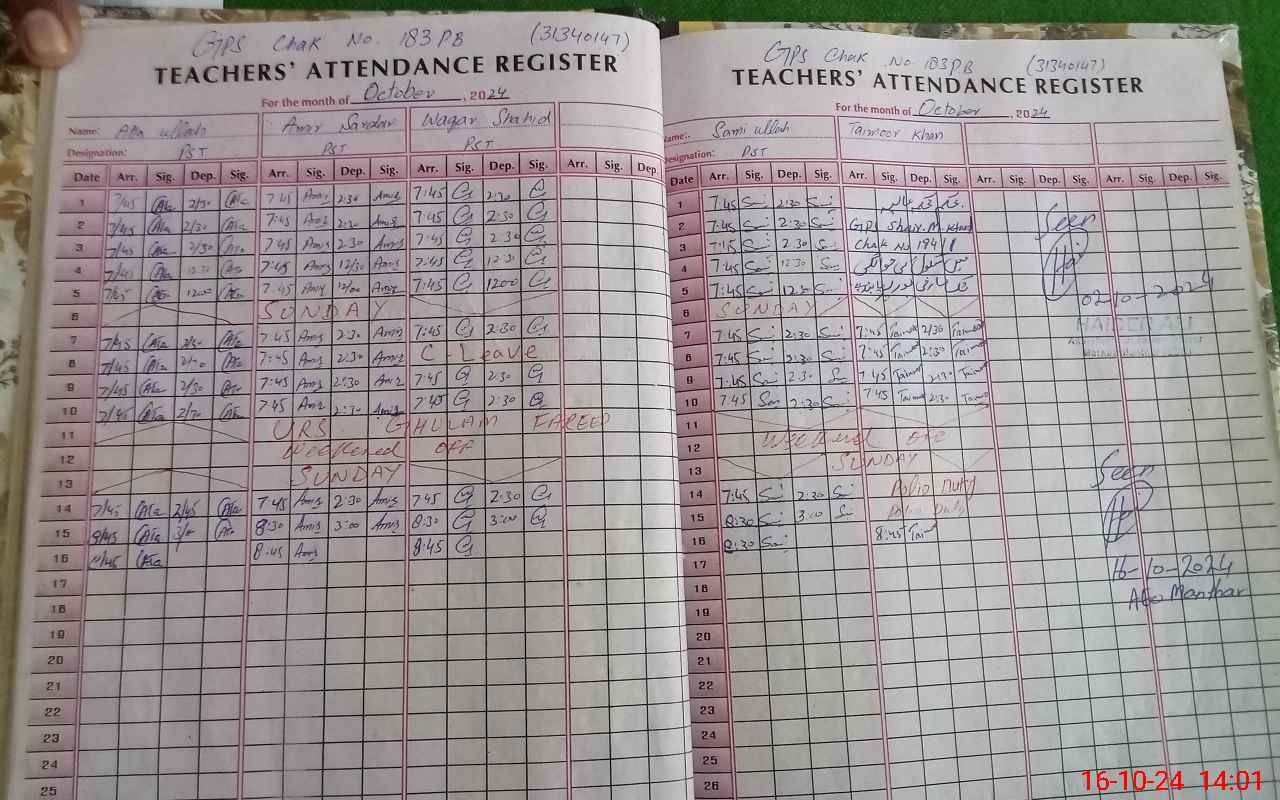 GPS Chak No. 183 PB (31340147)
TEACHERS' ATTENDANCE REGISTER
For the month of October, 2024
Name: Ata ullah Amir Sardar Waqar Shahid
Designation: PST PST PST
Date Arr. Sig. Dep. Sig. Arr. Sig. Dep. Sig. Arr. Sig. Dep. Sig. Arr. Sig. Dep.
1 7/45 Ata 2/30 Ata 7:45 Amir 2:30 Amir 7:45 2:30
2 7/45 Ata 2/30 Ata 7:45 Amir 2:30 Amir 7:45 2:30
3 7/45 Ata 2/30 Ata 7:45 Amir 2:30 Amir 7:45 2:30
4 7/45 Ata 12:30 Ata 7:45 Amir 12/30 Amir 7:45 12:30
5 7/45 Ata 1200 Ata 7:45 Amir 12/00 Amir 7:45 1200
6 SUNDAY
7 7/45 Ata 2/30 Ata 7:45 Amir 2:30 Amir 7:45 2:30
8 7/45 Ata 2/30 Ata 7:45 Amir 2:30 Amir C-Leave
9 7/45 Ata 2/30 Ata 7:45 Amir 2:30 Amir 7:45 2:30
10 7/45 Ata 2/30 Ata 7:45 Amir 2:30 Amir 7:45 2:30
11 URS GHULAM FAREED
12 Weekened OFF
13 SUNDAY
14 7/45 Ata 2/45 Ata 7:45 Amir 2:30 Amir 7:45 2:30
15 8/45 Ata Ata 8:30 Amir 3:00 Amir 8:30 3:00
16 Ata 8:45 Amir 8:45
17
18
19
20
21
22
23
24
25
GPS Chak No. 183 PB (31340147)
TEACHERS' ATTENDANCE REGISTER
For the month of October, 2024
Name:. Sami ullah Taimoor Khan
Designation: PST
Date Arr. Sig. Dep. Sig. Arr. Sig. Dep. Sig. Arr. Sig. Dep. Sig. Arr. Sig. Dep. Sig.
1 7:45 Sami 2:30 Sami
2 7:45 Sami 2:30 Sami GPS Sher M. Khan Seen
3 7:45 Sami 2:30 Sami Chak No 184/1
4 7:45 Sami 12:30 Sami
5 7:45 Sami 12:30 Sami 02-10-2024
6 SUNDAY
HAIDER ALI
7 7:45 Sami 2:30 Sami 7:45 Taimoor 2/30 Taimoor
8 7:45 Sami 2:30 Sami 7:45 Taimoor 2:30 Taimoor
9 7:45 Sami 2:30 Sami 7:45 Taimoor 2:30 Taimoor
10 7:45 Sami 2:30 Sami 7:45 Taimoor 2:30 Taimoor
11
12 Weekend OFF
13 SUNDAY Seen
14 7:45 Sami 2:30 Sami Polio Duty
15 8:30 Sami 3:00 Sami Polio Duty
16 8:30 Sami 8:45 Taimoor
17 16-10-2024
18 AEO Manthar
19
20
21
22
23
24
25
26
16-10-24 14:01